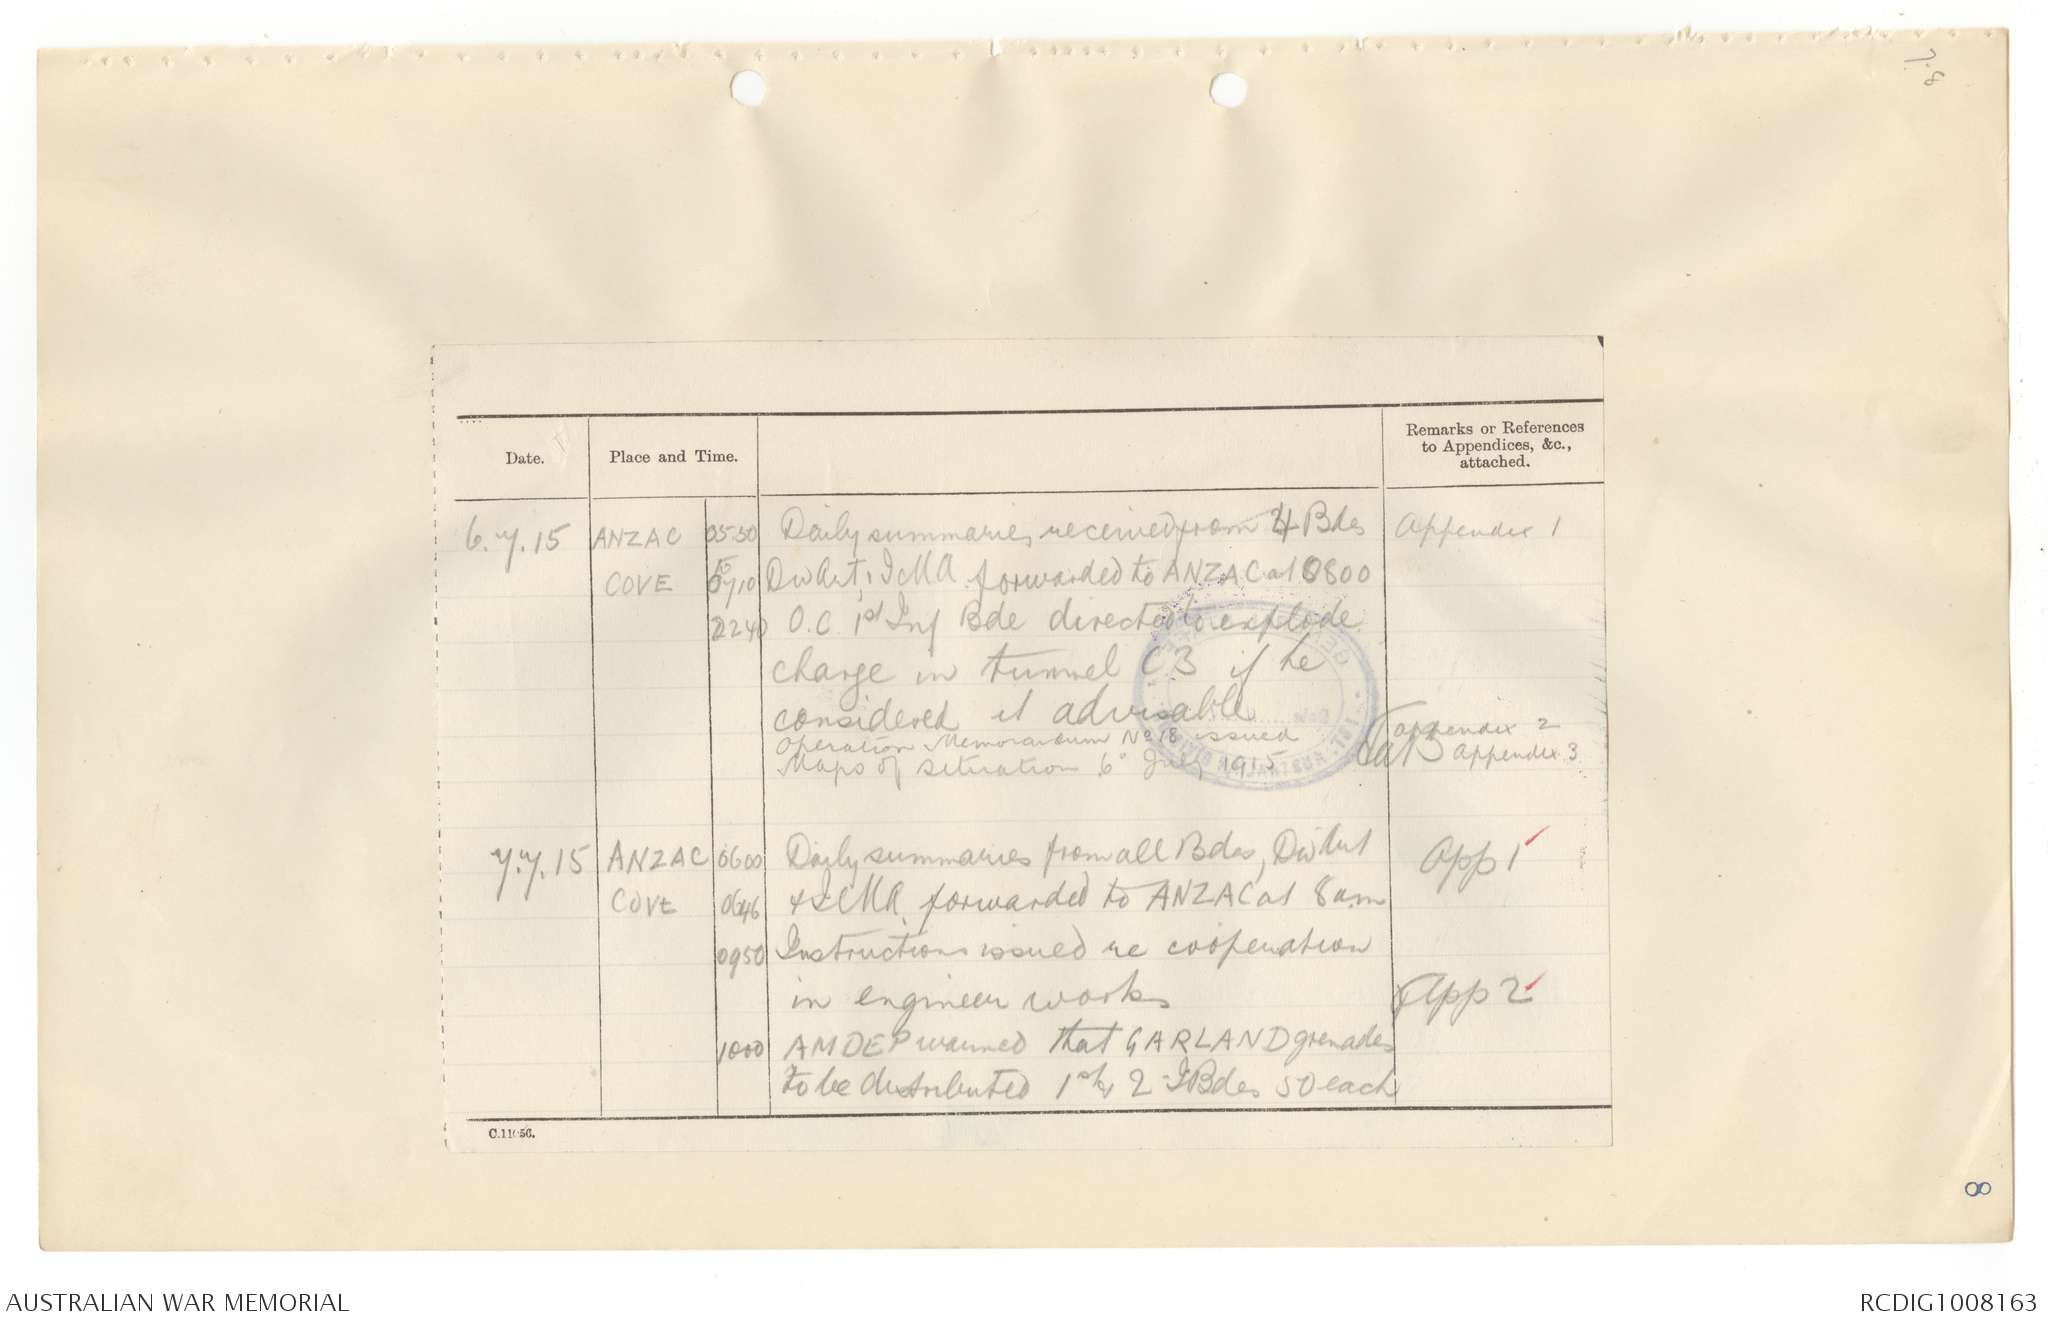 7.8
Date.
Place and Time.
Remarks or References
to Appendices, &c.,
attached.
6.7.15 ANZAC 0550 Daily summaries received from 4 Bdes Appendix 1
COVE to 0710 Div Art, ICMA forwarded to ANZAC at 0800
2240 O.C 1st Inf Bde directed to explode
charge in tunnel C3 if he
considered it advisable
Operation Memorandum No 18 issued appendix 2
Maps of situation 6" July 1915 appendix 3
7.7.15 ANZAC 0600 Daily summaries from all Bdes, Div Art App 1
COVE 0646 + ICMA forwarded to ANZAC at 8 am
0950 Instructions issued re coöperation
in engineer works App 2
1000 AMDEP warned that GARLAND grenades
to be distributed 1st & 2 I Bdes 50 each
C.11056.
8
AUSTRALIAN WAR MEMORIAL
RCDIG1008163